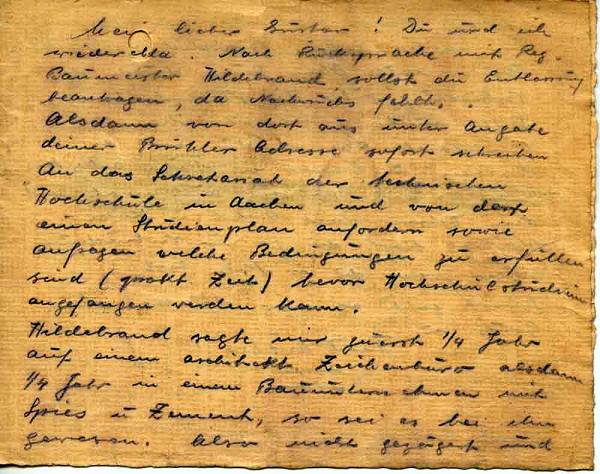 Mein lieber Gustav! Du und ich
wieder da. Nach Rücksprache mit Reg.
Baumeister Hildebrand, sollst du Entlassung
beantragen, da Nachwuchs fehlt.
Alsdann von dort aus unter Angabe
deiner Brühler Adresse sofort schreiben
An das Sekretariat der technischen
Hochschule in Aachen und von dort
einen Studienplan anfordern sowie
anfragen welche Bedingungen zu erfüllen
sind (prakt Zeit) bevor Hochschulstudium
angefangen werden kann.
Hildebrand sagte mir zuerst 1/4 Jahr
auf einem architekt Zeichenbüro alsdann
1/4 Jahr in einem Bauunternehmen mit
Spies u Zement, so sei es bei ihm
gewesen. Also nicht gezögert und